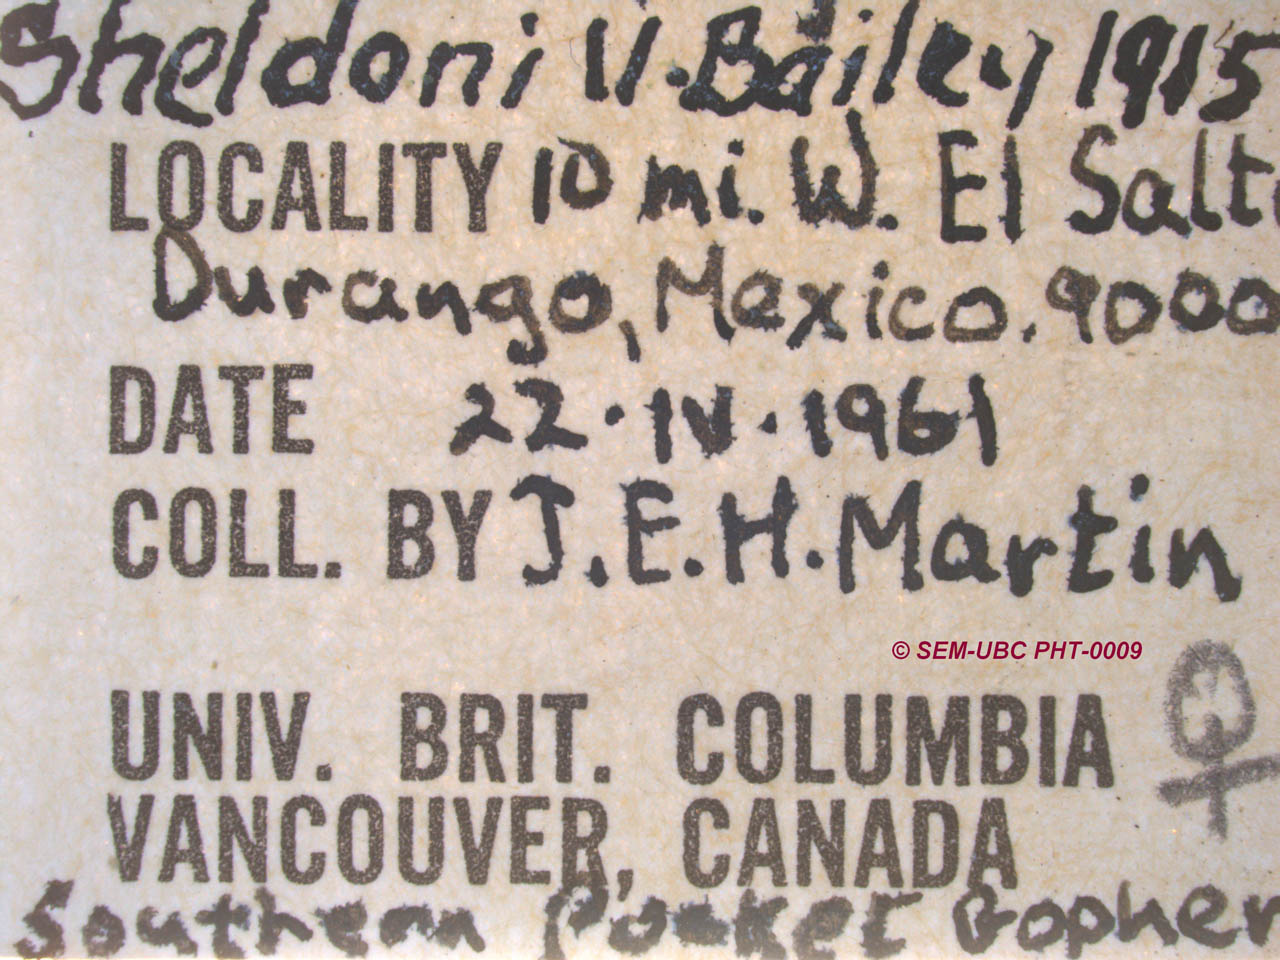 Sheldoni V. Bailey 1915
LOCALITY 10 mi. W. El Salt
Durango, Mexico. 9000
DATE 22·IV·1961
COLL. BY J.E.H. Martin
© SEM-UBC PHT-0009
UNIV. BRIT. COLUMBIA ♀
VANCOUVER, CANADA
Southern Pocket Gopher